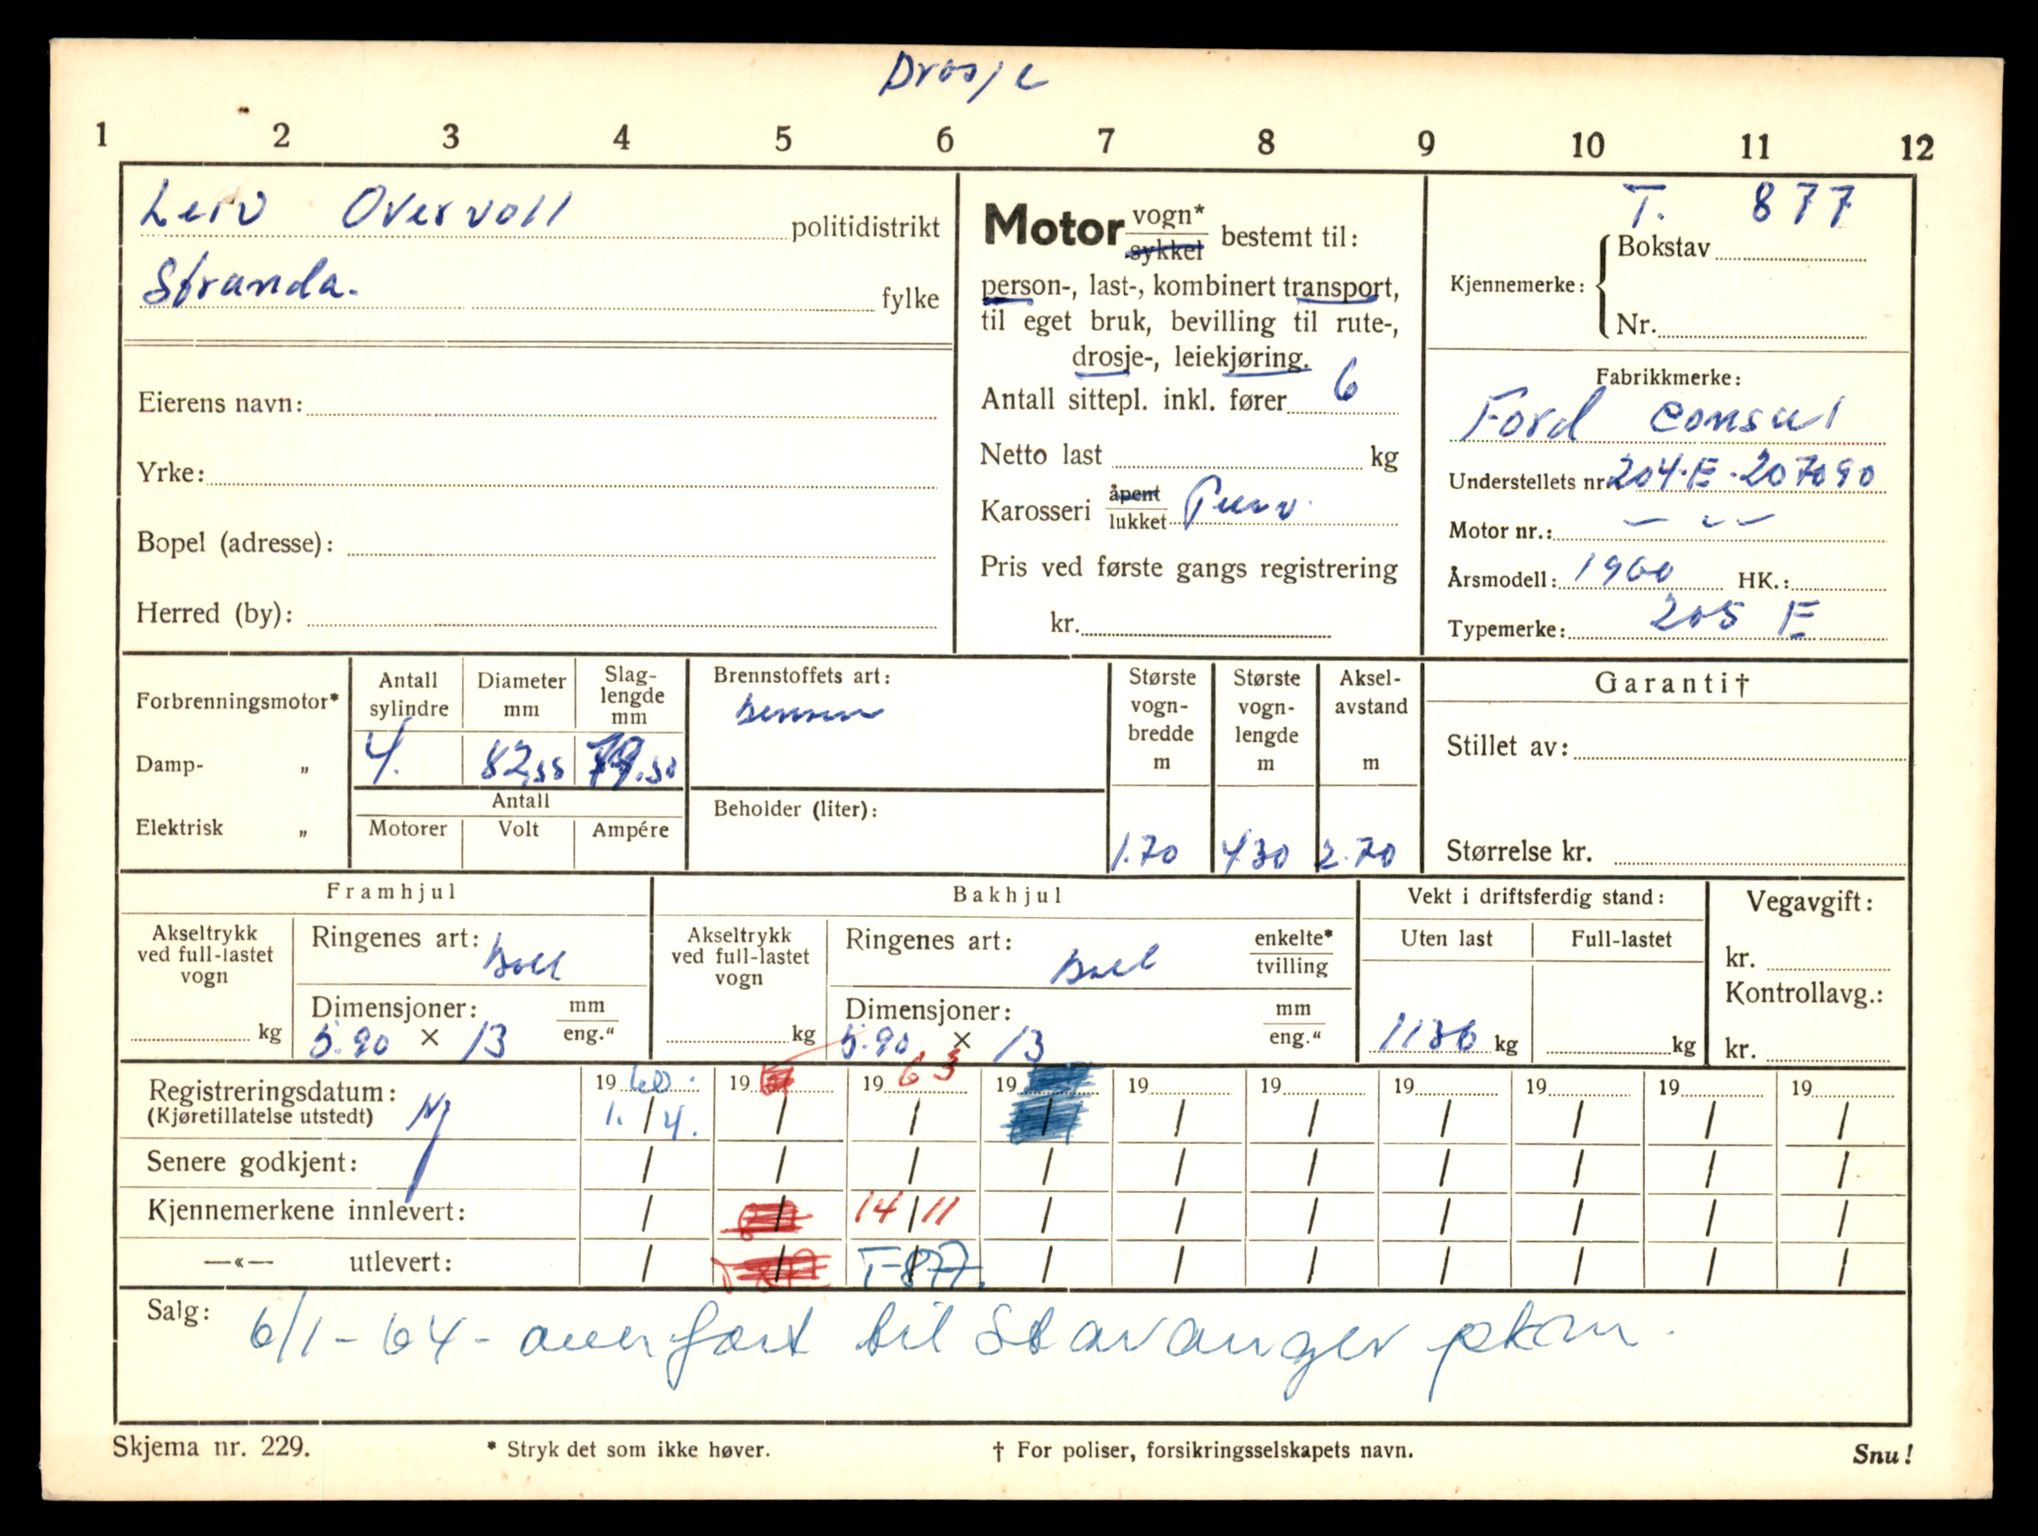 Drosje
1 2 3 4 5 6 7 8 9 10 11 12
Leiv Overvoll politidistrikt
Stranda. fylke
Eierens navn:
Yrke:
Bopel (adresse):
Herred (by):
Motor vogn* bestemt til:
sykkel
person-, last-, kombinert transport,
til eget bruk, bevilling til rute-,
drosje-, leiekjøring.
Antall sittepl. inkl. fører 6
Netto last kg
Karosseri åpent
lukket
Pris ved første gangs registrering
kr.
T. 877
Kjennemerke: Bokstav
Nr.
Fabrikkmerke:
Ford Consul
Understellets nr. 204.E.207090
Motor nr.: — — —
Årsmodell: 1960 HK.:
Typemerke: 205 E
Forbrenningsmotor*
Damp- „
Elektrisk „
Antall sylindre
4.
Diameter mm
82,55
Slag-
lengde
mm
79.50
Antall
Motorer Volt Ampére
Brennstoffets art:
Bensin
Beholder (liter):
Største
vogn-
bredde
m
1.70
Største
vogn-
lengde
m
4.30
Aksel-
avstand
m
2.70
Garanti†
Stillet av:
Størrelse kr.
Framhjul
Akseltrykk
ved full-lastet
vogn
kg
Ringenes art:
Dimensjoner: mm
5.90 × 13 eng."
Bakhjul
Akseltrykk
ved full-lastet
vogn
kg
Ringenes art: enkelte*
tvilling
Dimensjoner: mm
5.90 × 13 eng."
Vekt i driftsferdig stand:
Uten last Full-lastet
1136 kg kg
Vegavgift:
kr.
Kontrollavg.:
kr.
Registreringsdatum: 19 60. 19 19 63 19 19 19 19 19 19 19
(Kjøretillatelse utstedt) Ny 1. / 4. / / / / / / / / /
Senere godkjent: / / / / / / / / / /
Kjennemerkene innlevert: / / 14/11 / / / / / / /
—«— utlevert: / / T-877. / / / / / / /
Salg: 6/1-64- overført til Stavanger pkm.
Skjema nr. 229. * Stryk det som ikke høver. † For poliser, forsikringsselskapets navn. Snu!